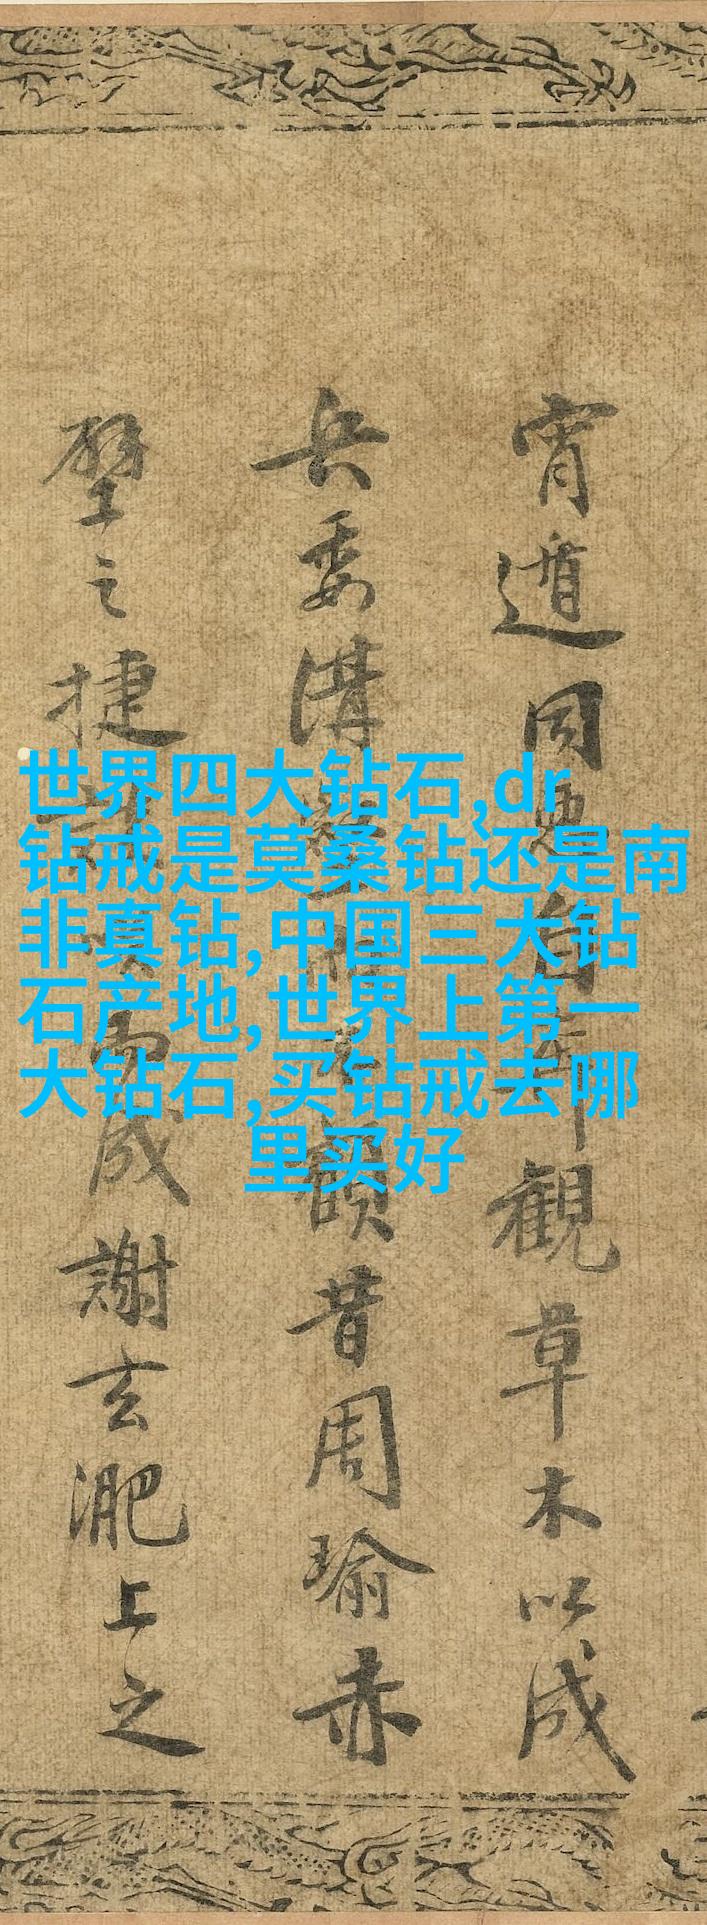 世界四大钻石,dr
钻戒是莫桑钻还是南
非真钻,中国三大钻
石产地,世界上第一
大钻石,买钻戒去哪
里买好
宵遁自觀草木以成
兵委溝顧昔周瑜赤
壁之捷談笑而成謝玄淝上之